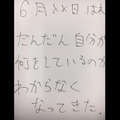 6月××日 はれ
だんだん自分が
何をしているのか
わからなく
なってきた.